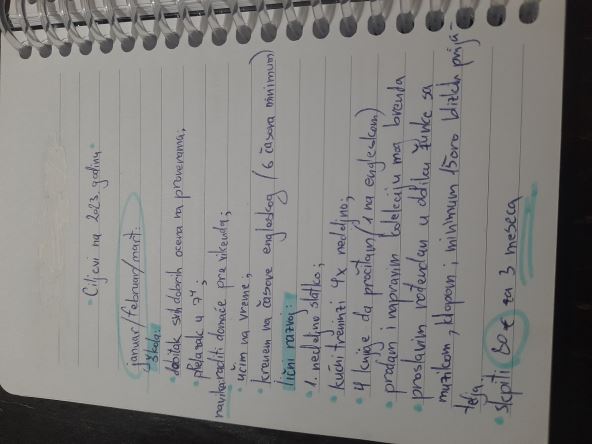 • Ciljevi na 2023. godinu •
januar/februar/mart:
škola:
• dobitak svih dobrih ocena na proverama;
• prelazak u 7⁴;
navika raditi domaće pre vikenda;
• učim na vreme;
• krenem na časove engleskog (6 časova minimum)
lični razvoj:
• 1. nedeljno slatko;
• kućni treninzi 4x nedeljno;
• 4 knjige da pročitam (1 na engleskom)
• prodam i napravim kolekciju mog brenda
• proslavim rođendan u odličnu žurke sa
muzikom, klopom i minimum 15oro bliskih prija-
telja
• skupiti 30€ za 3 meseca